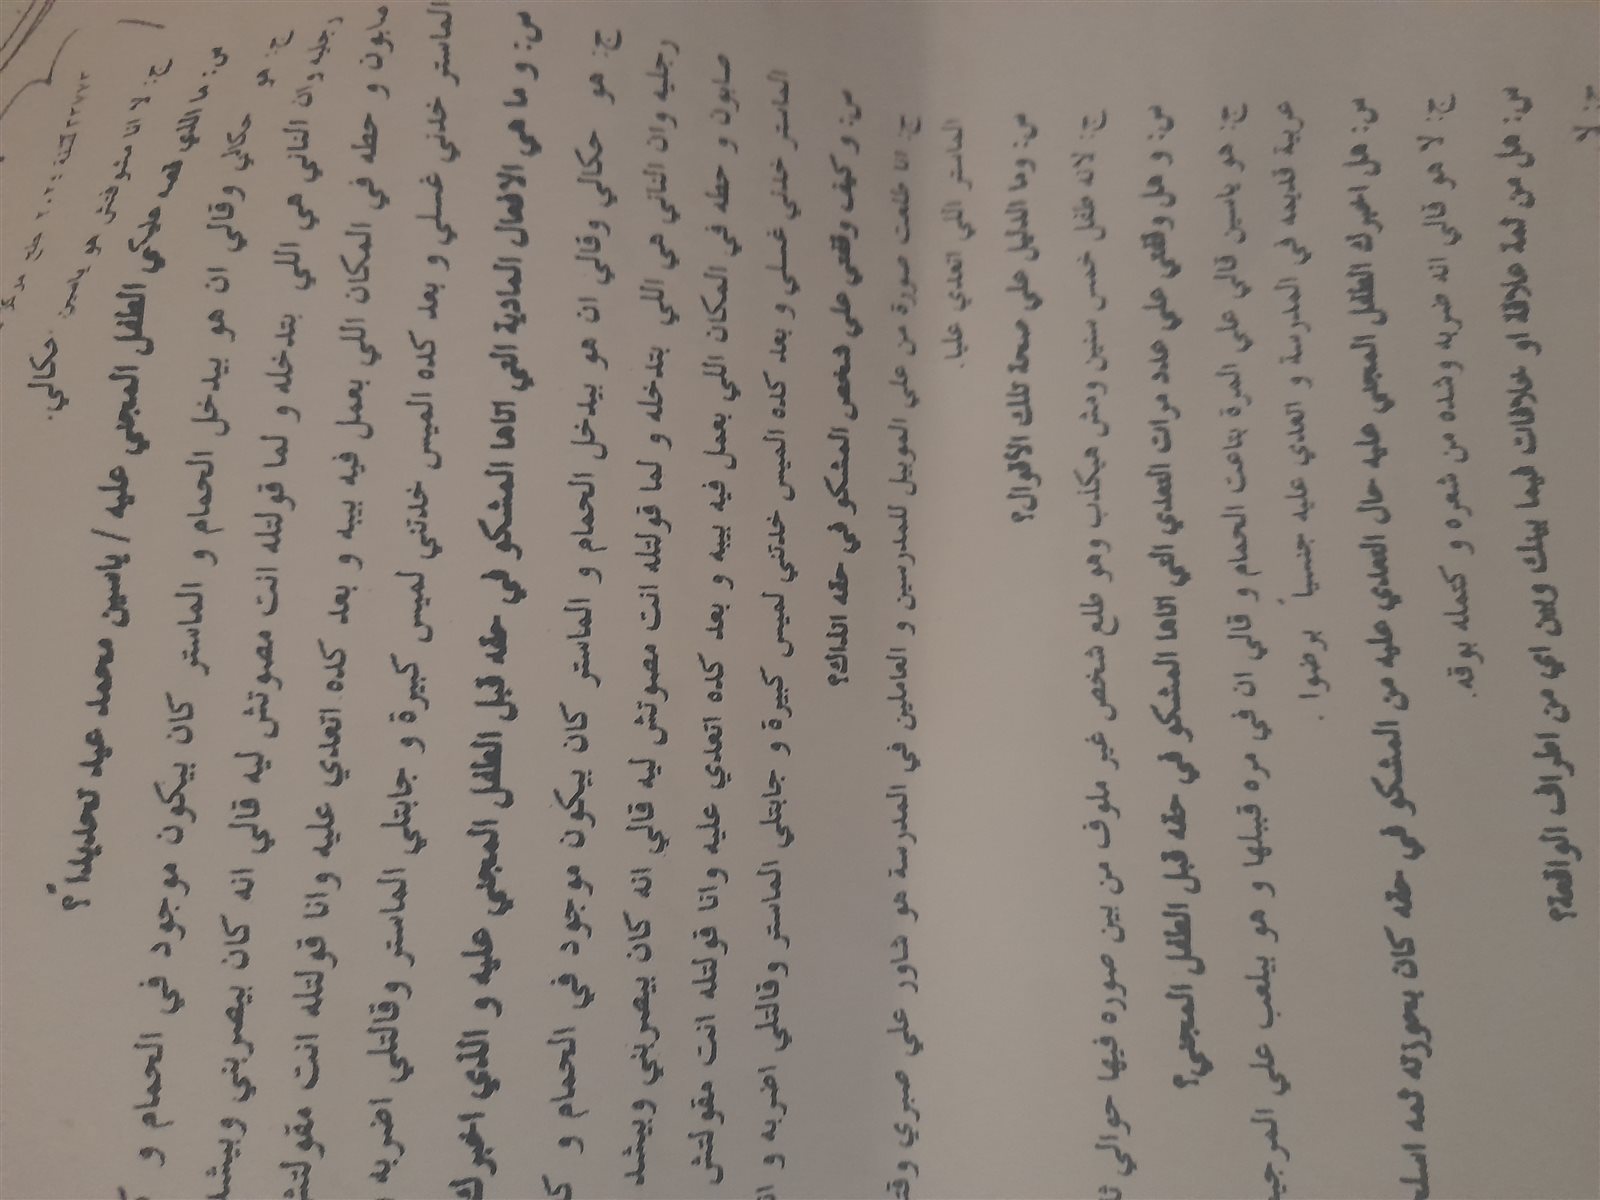 ٢٣٧٢٣ لسنة ٢٠٢٤
حكالي.
ج: لا انا معرفتش هو ياسين
س: ما الذي قصه عليكي الطفل المجني عليه / ياسين محمد عيد تحديداً؟
ج: هو حكالي وقالي ان هو بيدخل الحمام و الماستر كان بيكون موجود في الحمام و
رجليه وان التاني هي اللي بتدخله و لما قولتله انت مصوتش ليه قالي انه كان بيضربني وبيشد
صابون و حطه في المكان اللي بعمل فيه بيبه و بعد كده اتعدي عليه وانا قولتله انت مقولتش
الماستر خلاني غسلي و بعد كده الميس خدتني لميس كبيرة و جابتلي الماستر وقالتلي اضربه
س: و ما هي الافعال المادية التي اتاها المشكو في حقه قبل الطفل المجني عليه و الذي اخبرك
ج: هو حكالي وقالي ان هو بيدخل الحمام و الماستر كان بيكون موجود في الحمام و
رجليه وان التاني هي اللي بتدخله و لما قولتله انت مصوتش ليه قالي انه كان بيضربني وبيشد
صابون و حطه في المكان اللي بعمل فيه بيبه و بعد كده اتعدي عليه وانا قولتله انت مقولتش
الماستر خلاني غسلي و بعد كده الميس خدتني لميس كبيرة و جابتلي الماستر وقالتلي اضربه و
س: و كيف وقفتي علي شخص المشكو في حقه انذاك؟
ج: انا طلعت صورة من علي الموبيل للمدرسين و العاملين في المدرسة هو شاور علي صبري
الماستر اللي اتعدي عليا.
س: وما الدليل علي صحة تلك الأقوال؟
ج: لانه طفل خمس سنين ومش هيكذب وهو طلع شخص غير ملوف من بين صوره فيها حوالي
س: و هل وقفتي علي عدد مرات التعدي التي اتاها المشكو في حقه قبل الطفل المجني؟
ج: هو ياسين قالي علي المرة بتاعت الحمام و قالي ان في مره قبيلها و هو بيلعب علي
عربية قديمه في المدرسة و اتعدي عليه جنسياً برضوا .
س: هل اخبرك الطفل المجني عليه حال التعدي عليه من المشكو في حقه كان بحوزته ثمه
ج: لا هو قالي انه ضربه وشده من شعره و كتمله بوقه.
س: هل من ثمة علاقة او خلافات فيما بينك وبين اي من اطراف الواقعة؟
ج: لا